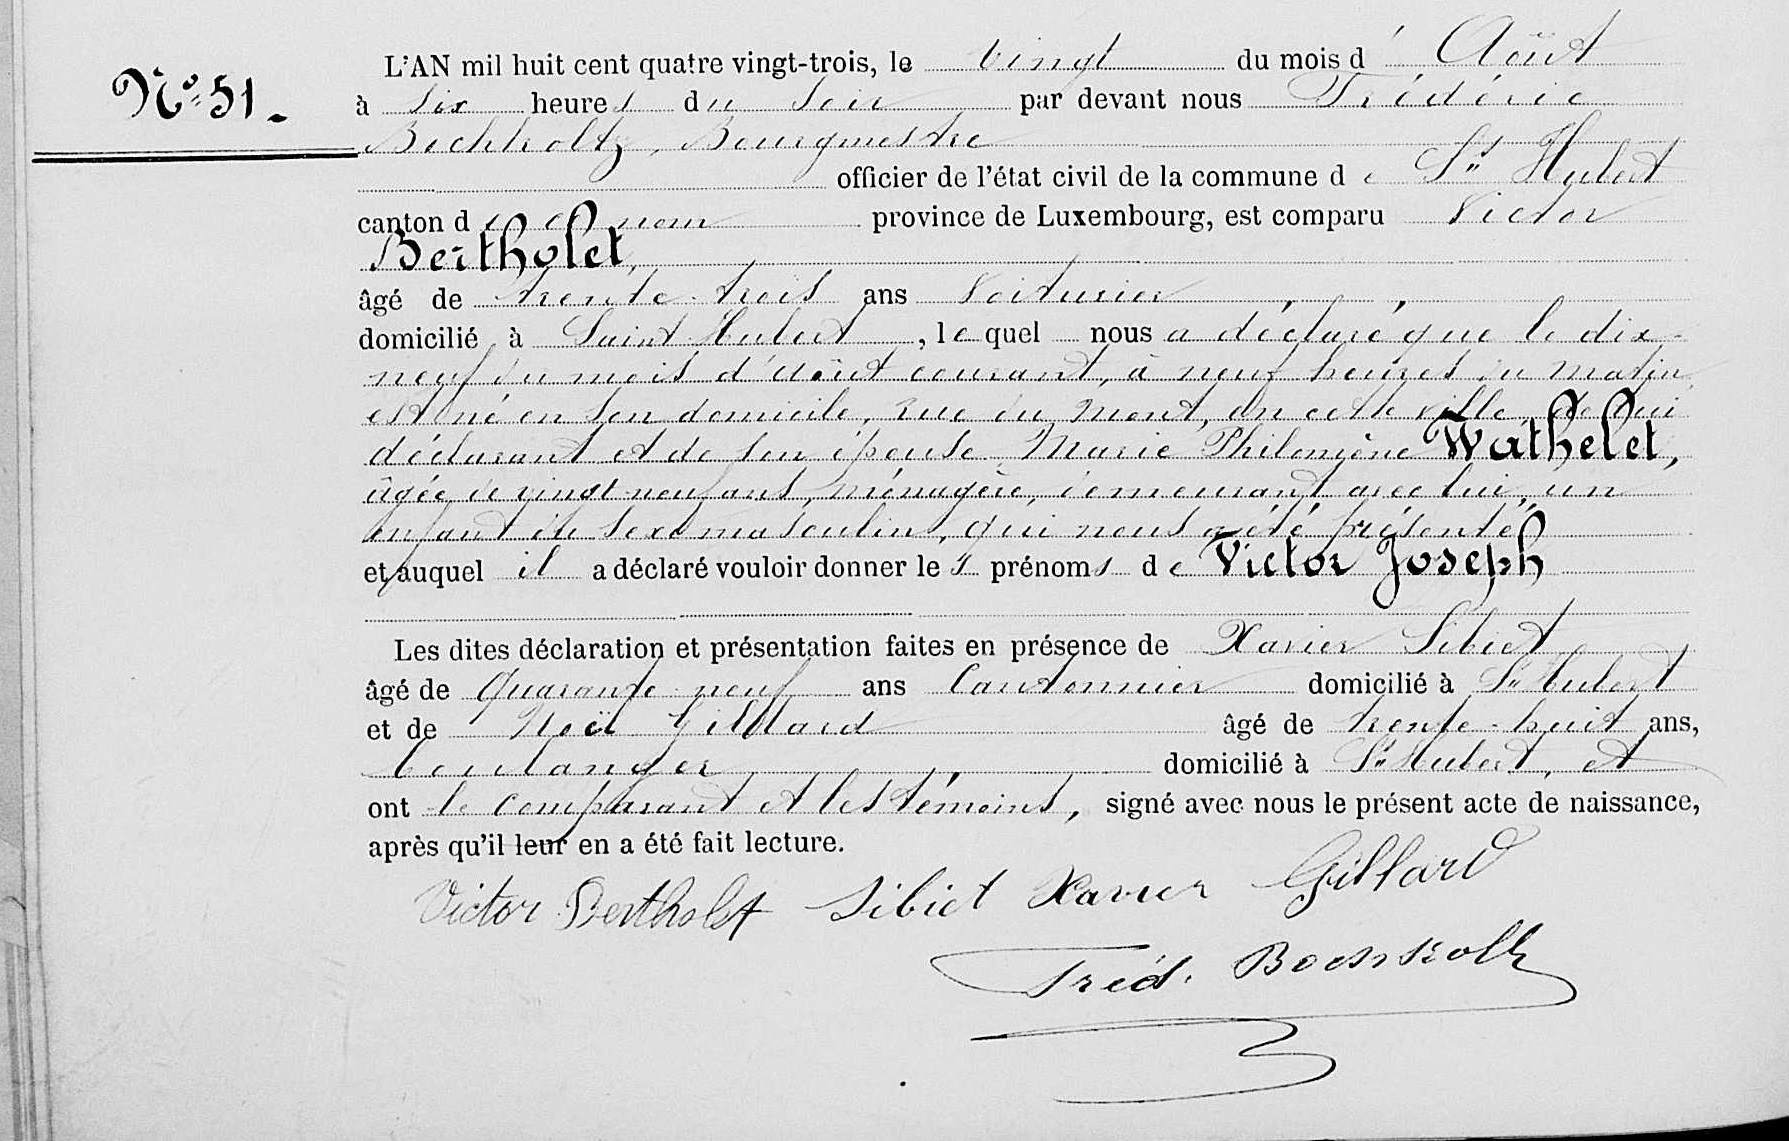 N° 51.
L'AN mil huit cent quatre vingt-trois, le vingt du mois d'Août
à six heures du soir par devant nous Frédéric
Bochkoltz, Bourgmestre
officier de l'état civil de la commune de St Hubert
canton de ce nom province de Luxembourg, est comparu Victor
Bertholet,
âgé de trente-trois ans Voiturier
domicilié à Saint-Hubert, lequel nous a déclaré que le dix-
neuf du mois d'Août courant, à neuf heures du matin,
est né en son domicile, rue du Mont, en cette ville, de lui
déclarant et de son épouse Marie Philomène Wathelet,
âgée de vingt-neuf ans, ménagère, demeurant avec lui, un
enfant du sexe masculin, qui nous a été présenté
et auquel il a déclaré vouloir donner les prénoms de Victor Joseph
Les dites déclaration et présentation faites en présence de Xavier Sibiet
âgé de Quarante-neuf ans Cantonnier domicilié à St Hubert
et de Noël Gillard âgé de trente-huit ans,
boulanger domicilié à St Hubert, et
ont le comparant et les témoins, signé avec nous le présent acte de naissance,
après qu'il leur en a été fait lecture.
Victor Bertholet Sibiet Xavier Gillard
Fréd. Bochkoltz